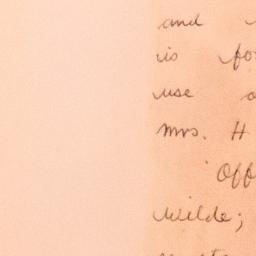 and
is
use
Mrs. H
Off
Wilde;